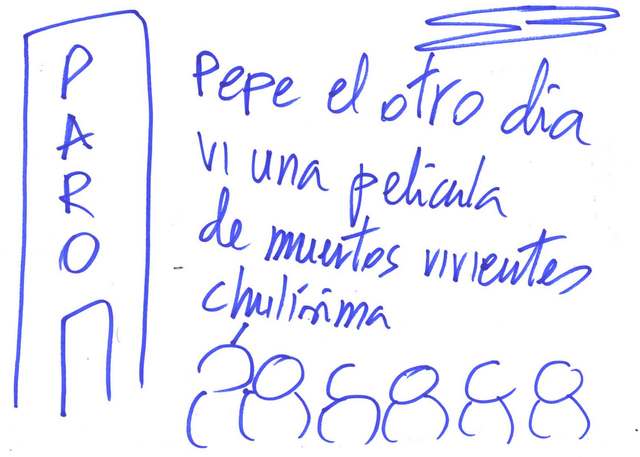 PARO
Pepe el otro dia
vi una pelicula
de muertos vivientes
chulísima